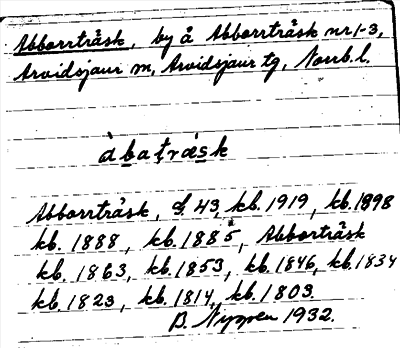 Abborrträsk, by å Abborrträsk nr 1-3,
Arvidsjaur m, Arvidsjaur tg, Norrb. l.
àbatrǽsk
Abborrträsk, d. 43, kb. 1919, kb. 1898
kb. 1888, kb. 1885, Abbortråsk
kb. 1863, kb. 1853, kb. 1846, kb. 1834
kb. 1823, kb. 1814, kb. 1803.
B. 1932.